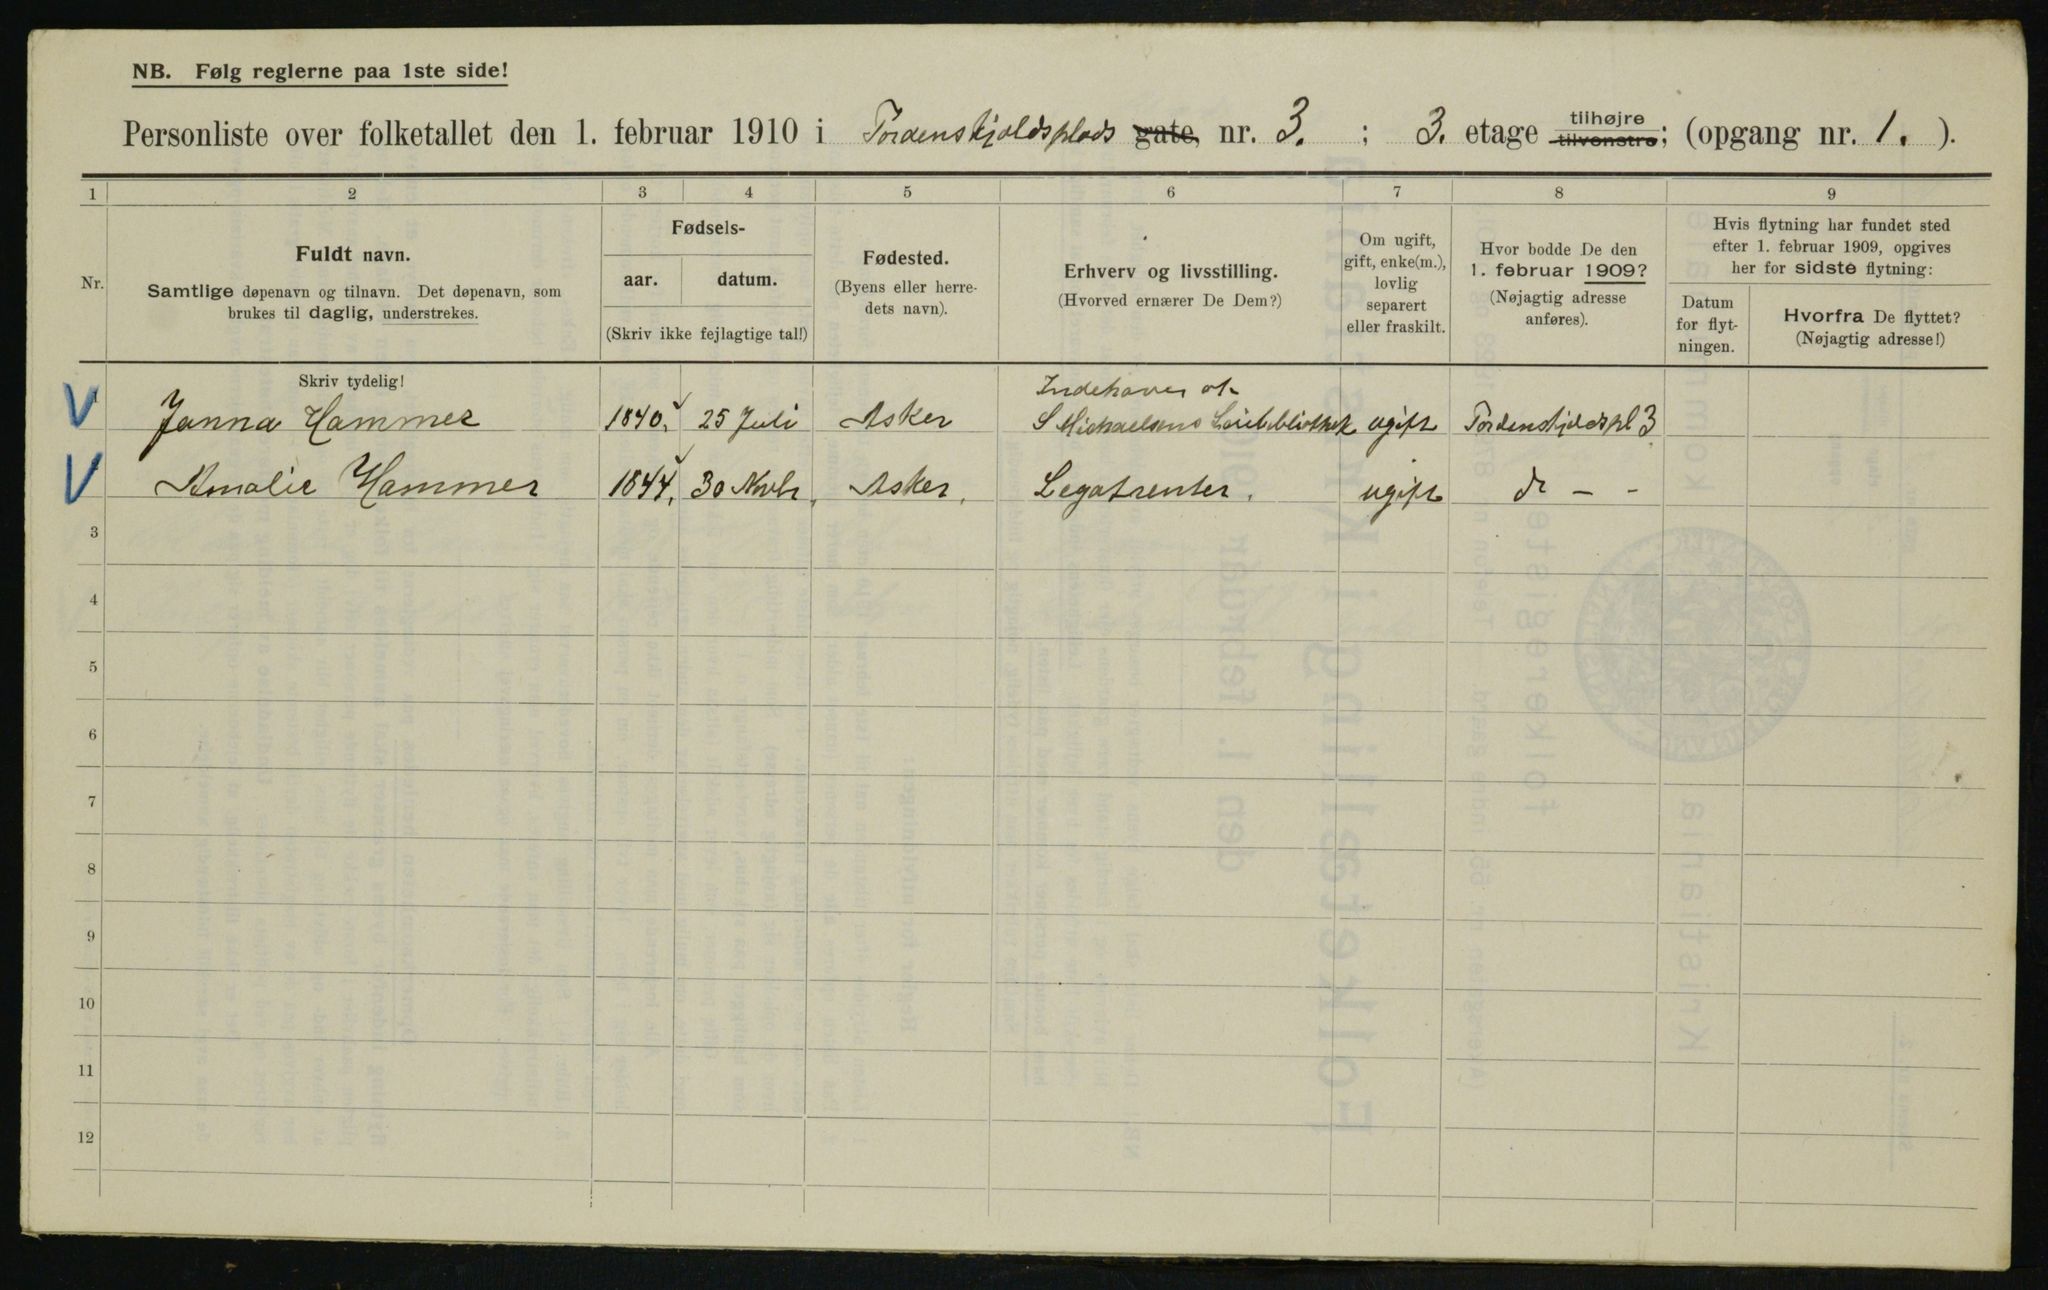 NB. Følg reglerne paa 1ste side!
Personliste over folketallet den 1. februar 1910 i Tordenskjoldsplads gate, nr. 3. ; 3. etage tilhøjre tilvenstre; (opgang nr. 1. ).
1 2 3 4 5 6 7 8 9
Nr.
Fuldt navn.
Samtlige døpenavn og tilnavn. Det døpenavn, som
brukes til daglig, understrekes.
Fødsels-
aar. datum.
(Skriv ikke fejlagtige tal!)
Fødested.
(Byens eller herre-
dets navn).
Erhverv og livsstilling.
(Hvorved ernærer De Dem?)
Om ugift,
gift, enke(m.),
lovlig
separert
eller fraskilt.
Hvor bodde De den
1. februar 1909?
(Nøjagtig adresse
anføres).
Hvis flytning har fundet sted
efter 1. februar 1909, opgives
her for sidste flytning:
Datum
for flyt-
ningen.
Hvorfra De flyttet?
(Nøjagtig adresse!)
Skriv tydelig!
Janna Hammer 1840, 25 Juli Asker Indehaver af
S Michaelsens Leiebibliothek ugift Tordenskjoldspl 3
Amalie Hammer 1844, 30 Novbr, Asker, Legatrenter. ugift do - -
3
4
5
6
7
8
9
10
11
12